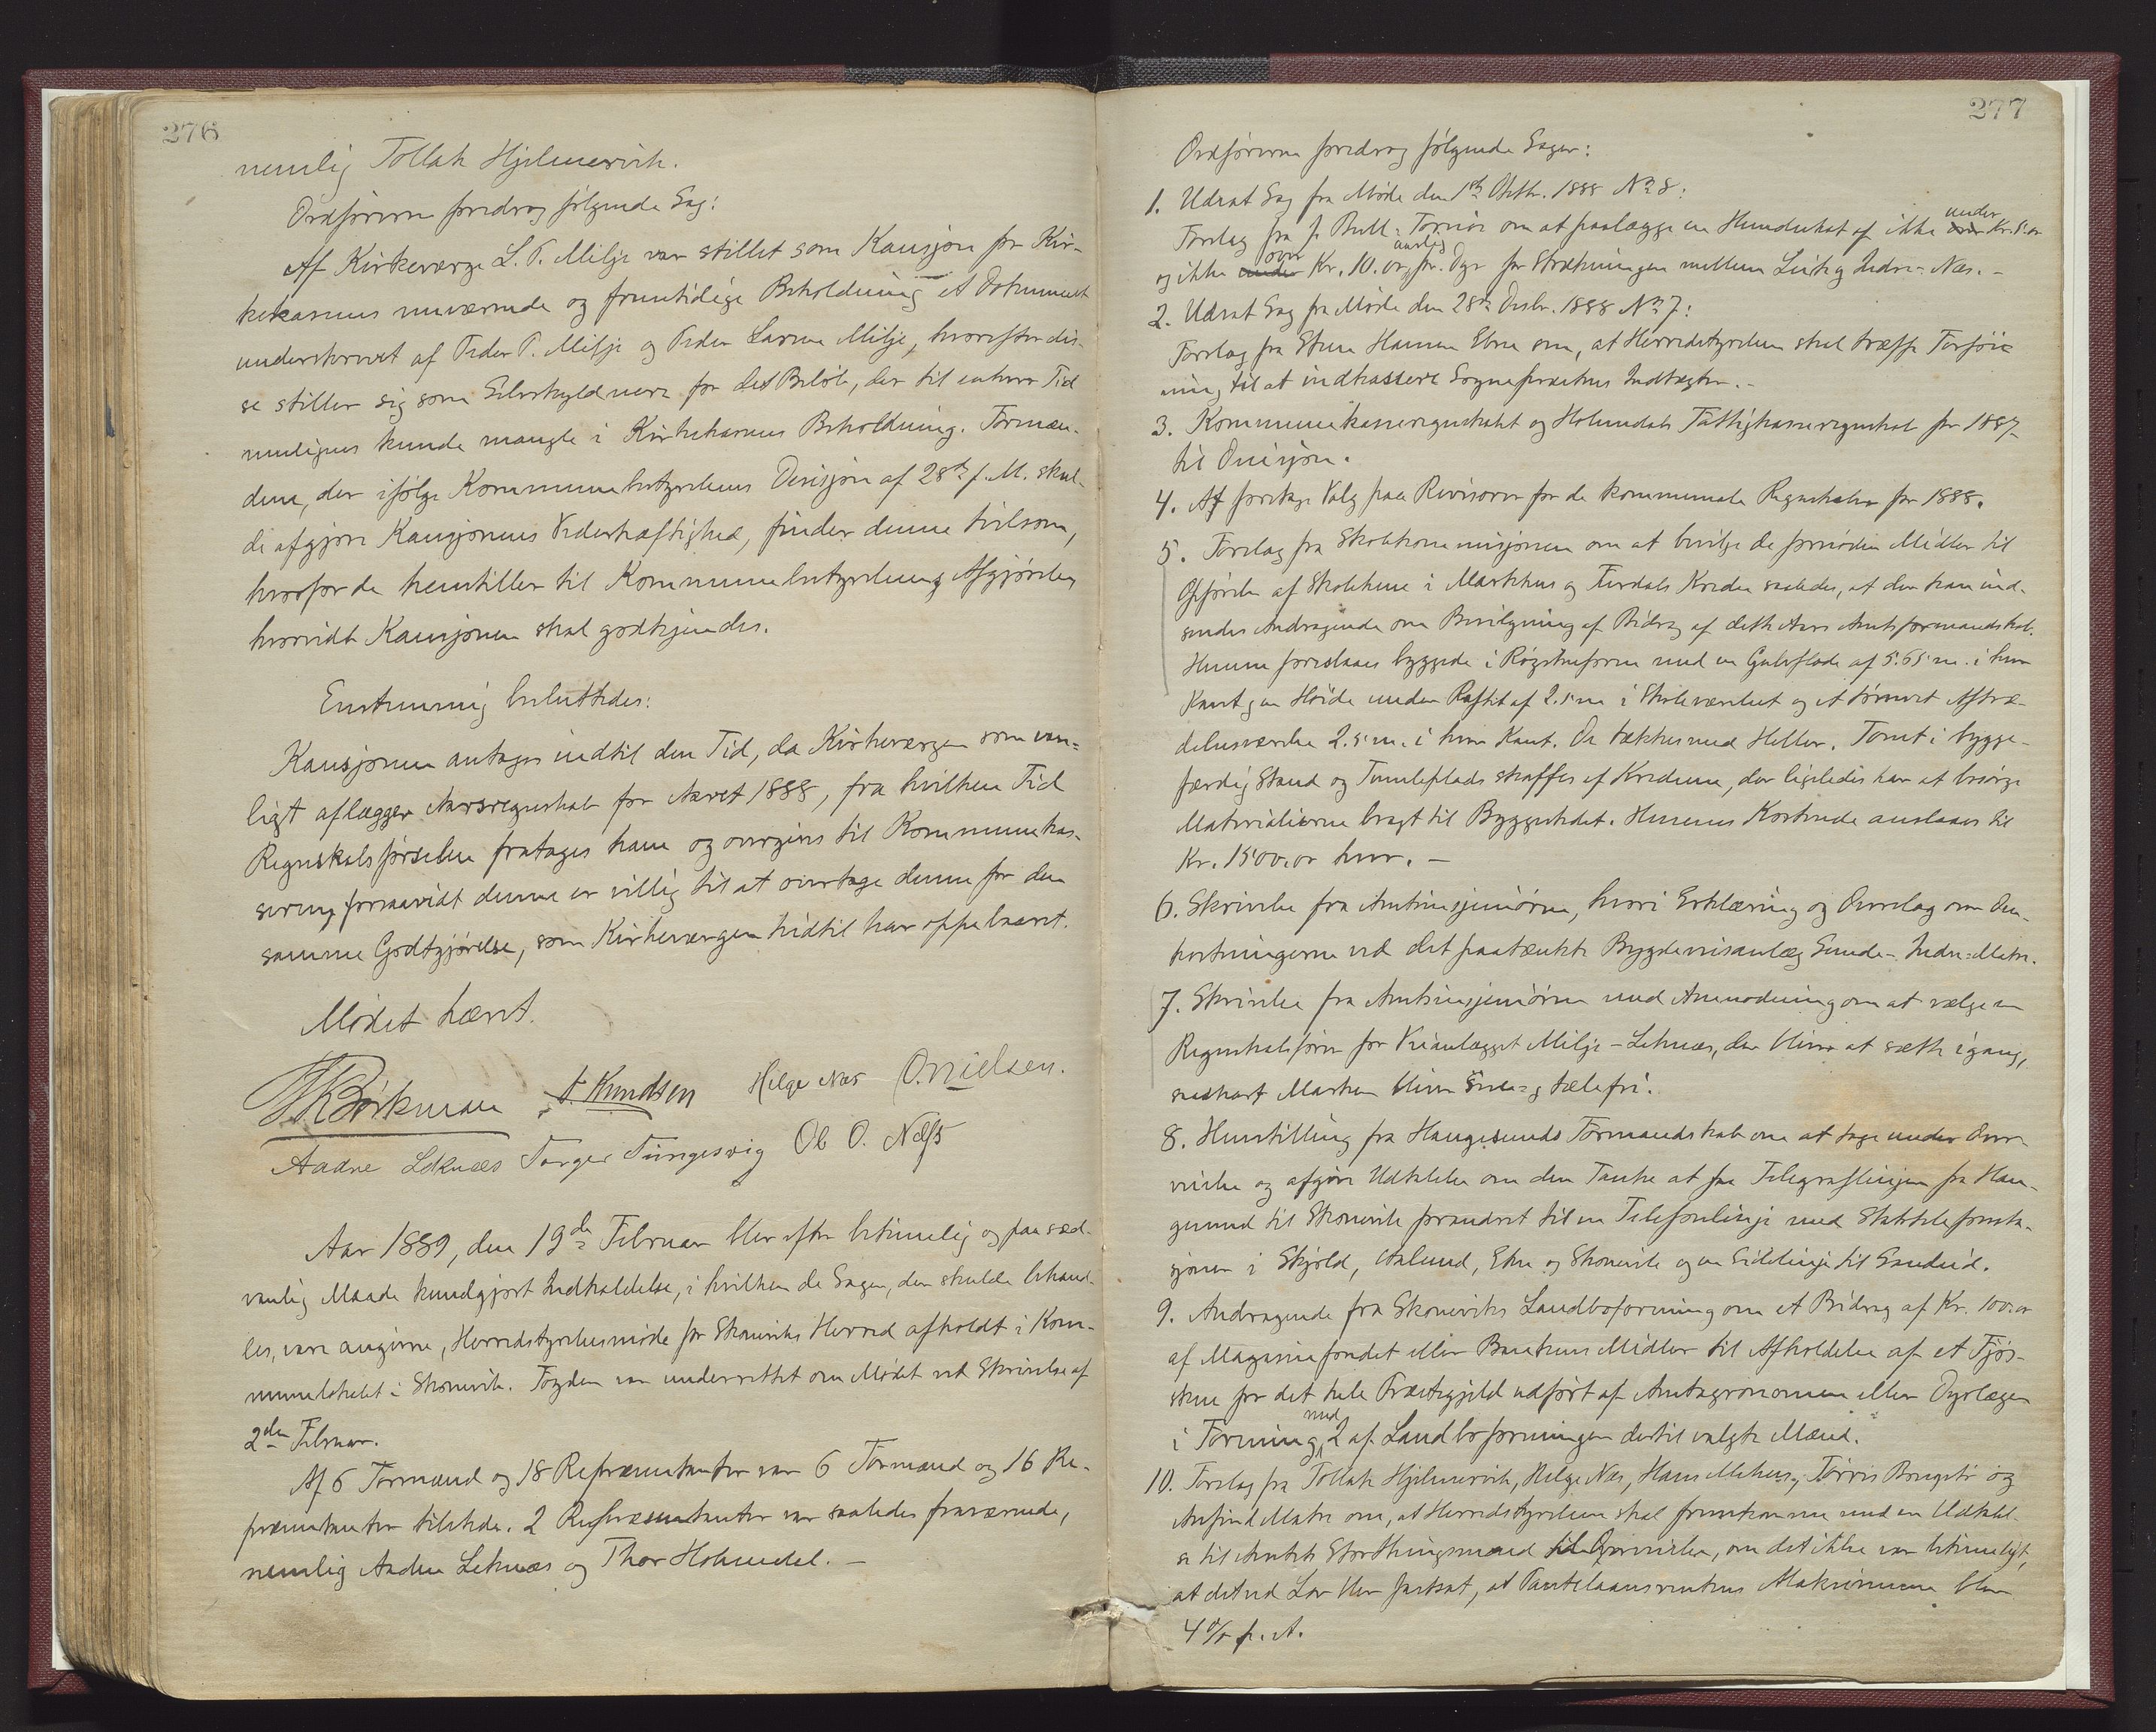 276
nemlig Tollak Hjelmervik.
Ordføreren foredrog følgende Sag:
Af Kirkeværge L. P. Milje var stillet som Kausjon for Kir-
kekassens nuværende og fremtidige Beholdning et Dokument
underskrevet af Peder P. Milje og Peder Larsen Milje, hvorefter dis-
se stiller sig som Selvskyldnere for det Beløb, der til enhver Tid
muligens kunde mangle i Kirkekassens Beholdning. Formæn-
dene, der ifølge Kommunebestyrelsens Desisjon af 28de f. M. skul-
de afgjøre Kausjonens Vederhæftighed, finder denne tvilsom,
hvorfor de henstiller til Kommunebestyrelsens Afgjørelse,
hvorvidt Kausjonen skal godkjendes.
Enstemmig besluttedes:
Kausjonen antages indtil den Tid, da Kirkeværgen som van-
ligt aflægger Aarsregnskab for Aaret 1888, fra hvilken Tid
Regnskabsførselen fratages ham og overgives til Kommunekas-
sereren, forsaavidt denne er villig til at overtage denne for den
samme Godtgjørelse, som Kirkeværgen hidtil har oppebaaret.
Mødet hævet.
Børkman A. Knudsen Helge Næs O. Nielsen.
Aadne Leknæs Torger Tungesvig Ole O. Næss
Aar 1889, den 19de Februar blev efter betimelig og paa sæd-
vanlig Maade kundgjort Indkaldelse, i hvilken de Sager, der skulde behand-
les, vare angivne, Herredstyrelsesmøde for Skonevik Herred afholdt i Kom-
munelokalet i Skonevik. Fogden var underrettet om Mødet ved Skrivelse af
2den Februar.
Af 6 Formænd og 18 Repræsentanter var 6 Formænd og 16 Re-
præsentanter tilstede. 2 Repræsentanter var saaledes fraværende,
nemlig Aadne Leknæs og Thor Holmedal. —
277
Ordføreren foredrog følgende Sager:
1. Udsat Sag fra Møde den 1ste Oktbr. 1888 No 8:
Forslag fra J. Bull-Tornøe om at paalægge en Hundeskat af ikke over under Kr. 5.00
og ikke under over Kr. 10.00 aarlig pr. Dyr for Strækningen mellem Lei og Indre-Næs. —
2. Udsat Sag fra Møde den 28de Desbr. 1888 No 7:
Forslag fra Sten Hansen Etne om, at Herredstyrelsen skal træffe Forføie
ning til at indkassere Sognepræstens Indtægter. —
3. Kommunekasseregnskabet og Holmedals Fattigkasseregnskab for 1887
til Desisjon.
4. At foretage Valg paa Revisorer for de kommunale Regnskaber for 1888.
5. Forslag fra Skolekommisjonen om at bevilge de fornødne Midler til
Opførelse af Skolehuse i Markhus og Fjærdals Kredse saaledes, at der kan ind-
sendes Andragende om Bevilgning af Bidrag af dette Aars Amtsformandskab.
Husene foreslaaes byggede i Røgstueform med en Gulvflade af 5.65 m. i hver
Kant, en Høide under Raftet af 2.5 m i Skoleværelset og et tømret Aftræ-
delsesværelse 2.5 m. i hver Kant. De tækkes med Heller. Tomt i bygge-
færdig Stand og Tumleplads skaffes af Kredsene, der ligeledes har at besørge
Materialierne bragt til Byggestedet. Husenes Kostende anslaaes til
Kr. 1500.00 hver. —
6. Skrivelse fra Amtsinsjeniøren, hvori Erklæring og Overslag om Om-
kostningerne ved det paatænkte Bygdeveisanlæg Sunde - Indre-Matre.
7. Skrivelse fra Amtsinsjeniøren med Anmodning om at vælge en
Regnskabsfører for Veianlægget Milje - Leknæs, der bliver at sætte igang,
saasnart Marken bliver sne- og tælefri.
8. Henstilling fra Haugesunds Formandskab om at tage under Over-
veielse og afgive Udtalelse om den Tanke at faa Telegraflinjen fra Hau-
gesund til Skonevik forandret til en Telefonlinje med Statstelefonsta-
sjoner i Skjold, Ølen, Etne og Skonevik og en Sidelinje til Sandeid.
9. Andragende fra Skoneviks Landboforening om et Bidrag af Kr. 100.00
af Magasinfondet eller Bankens Midler til Afholdelse af et Fjøs-
skue for det hele Præstegjeld udført af Amtsagronomen eller Dyrlægen
i Forening med 2 af Landboforeningen dertil valgte Mænd.
10. Forslag fra Tollak Hjelmervik, Helge Næs, Hans Mehus, Tørris Bongsto og
Anfind Matre om, at Herredstyrelsen skal fremkomme med en Udtalel-
se til Amtets Storthingsmænd til Overveielse, om det ikke var betimeligt,
at det ved Lov blev fastsat, at Pantelaansrentens Maksimum blev
4 % p. A.